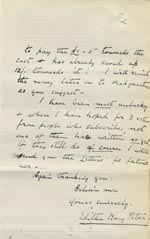 to pay the £1-5 towards the
cost & has already saved up
12/- towards it! I will remit
the money later on to Headquarters
as you suggest.
I have been most unlucky
& where I have hoped for 3 votes
from people who subscribe not
one of them has written as yet
if they still do of course I will
send you the Letters for future
use.
Again thanking you.
Believe me
Yours sincerely.
Edith Mary